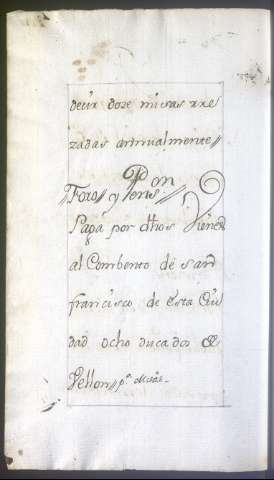 decir doze misas rre
zadas annualmente //
Pon
Foro // y Pens.
Paga por dhos Vienes
al Combento de San
francisco de esta Ciu
dad ocho ducados de
Vellon // pª Misas